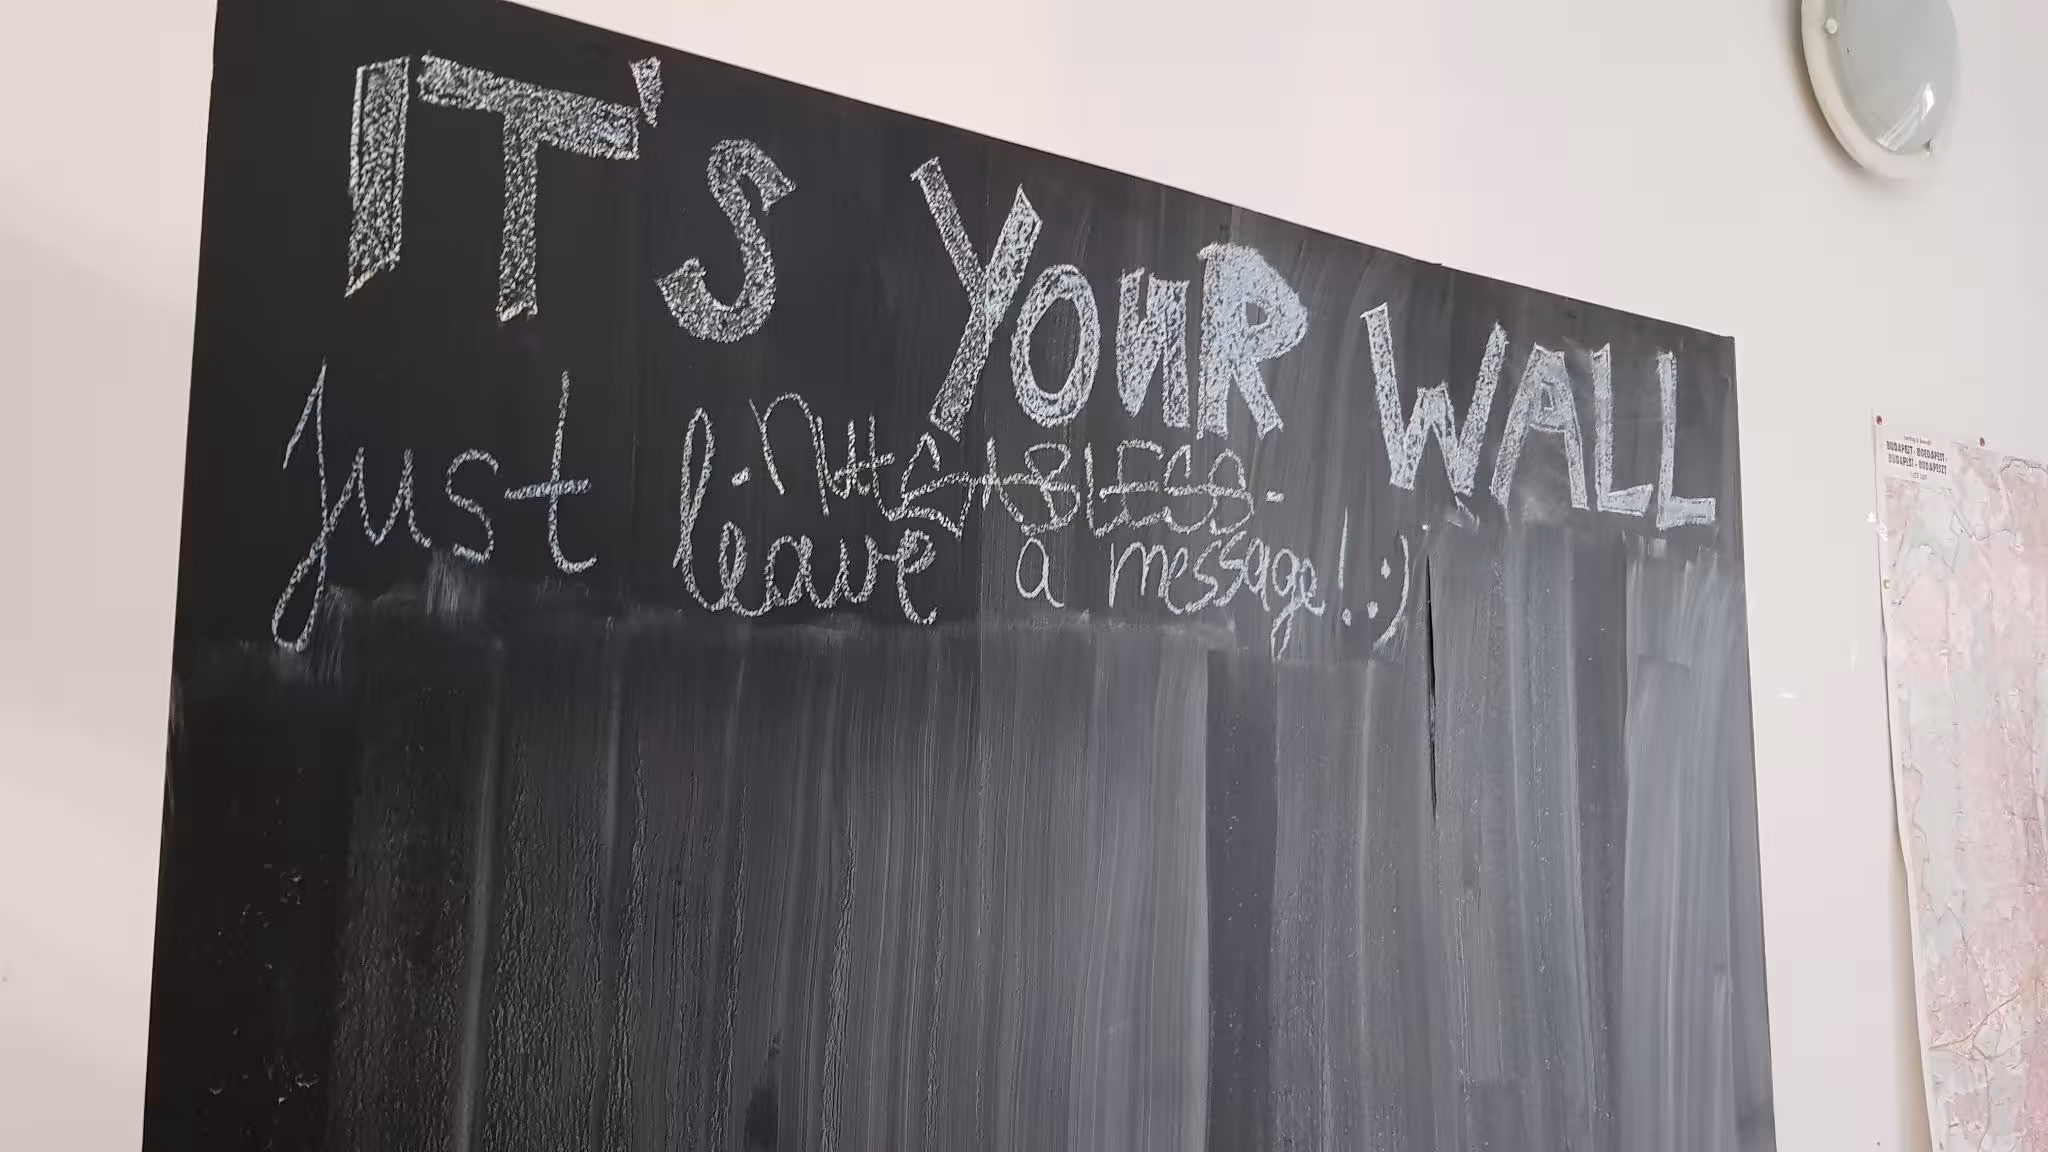 IT'S YOUR WALL
Just leave a message! :)
BUDAPEST • BOEDAPEST •
BUDAPEŠT • BUDAPESZT